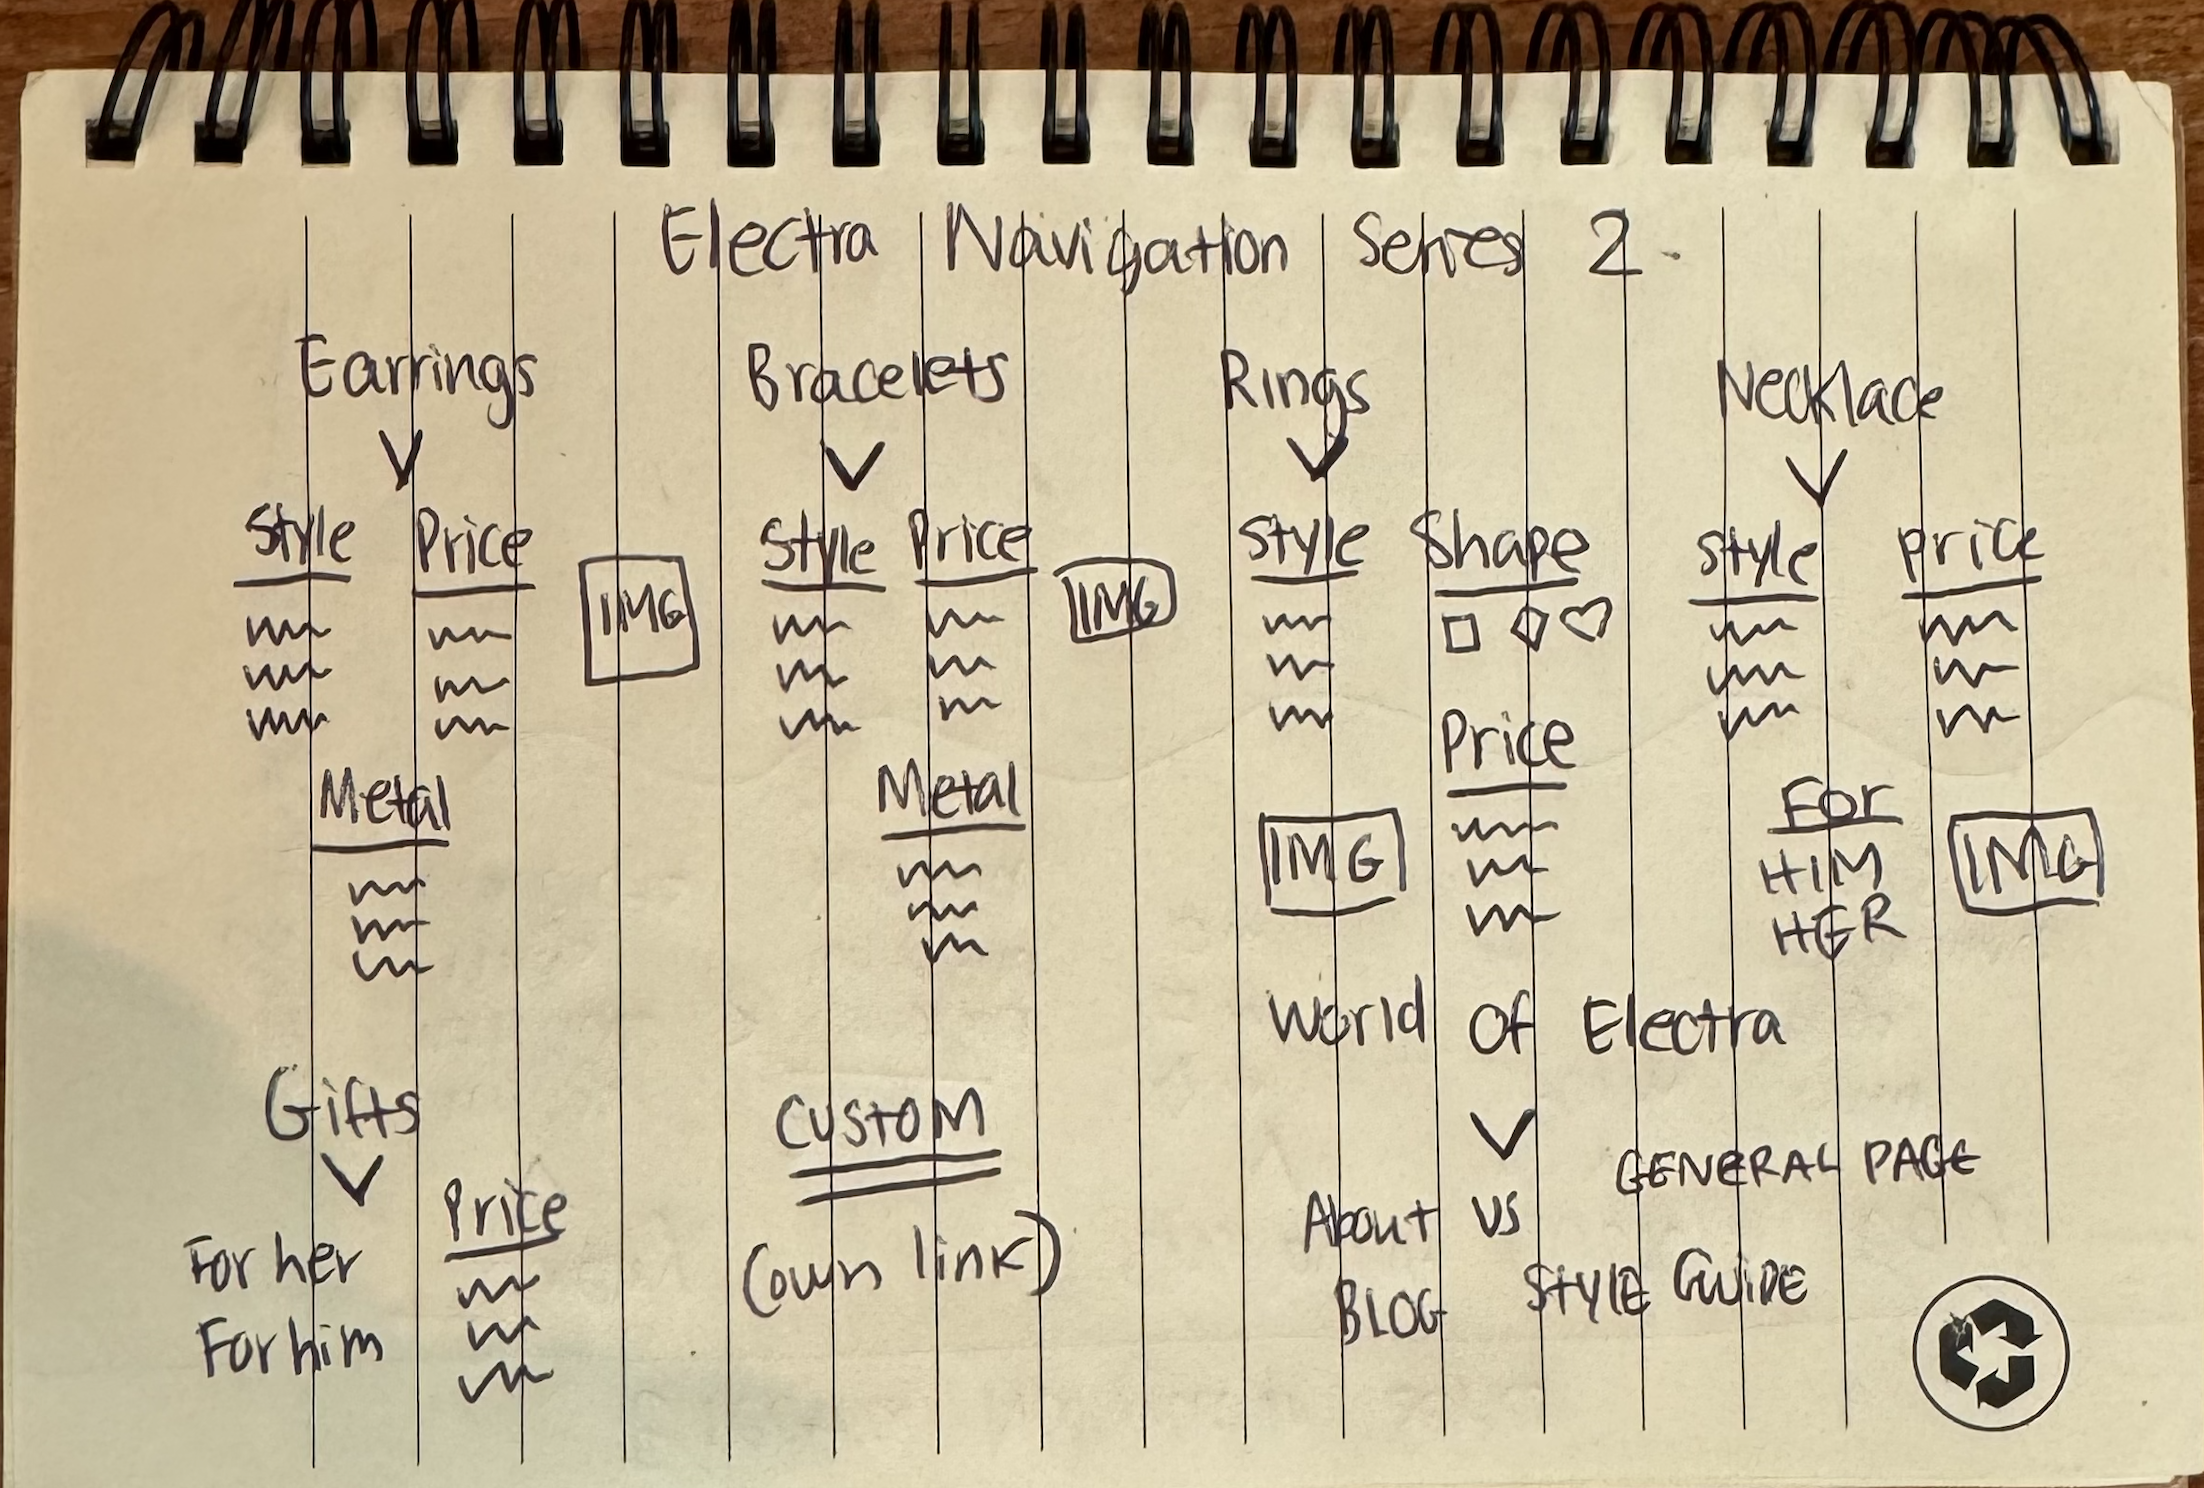 Electra Navigation Series 2
Earrings
Style Price
IMG
Metal
Bracelets
Style Price
IMG
Metal
Rings
Style Shape
Price
IMG
Necklace
Style Price
For
HIM
HER
IMG
Gifts
For her
For him
Price
CUSTOM
(own link)
World Of Electra
GENERAL PAGE
About US
BLOG
STYLE GUIDE